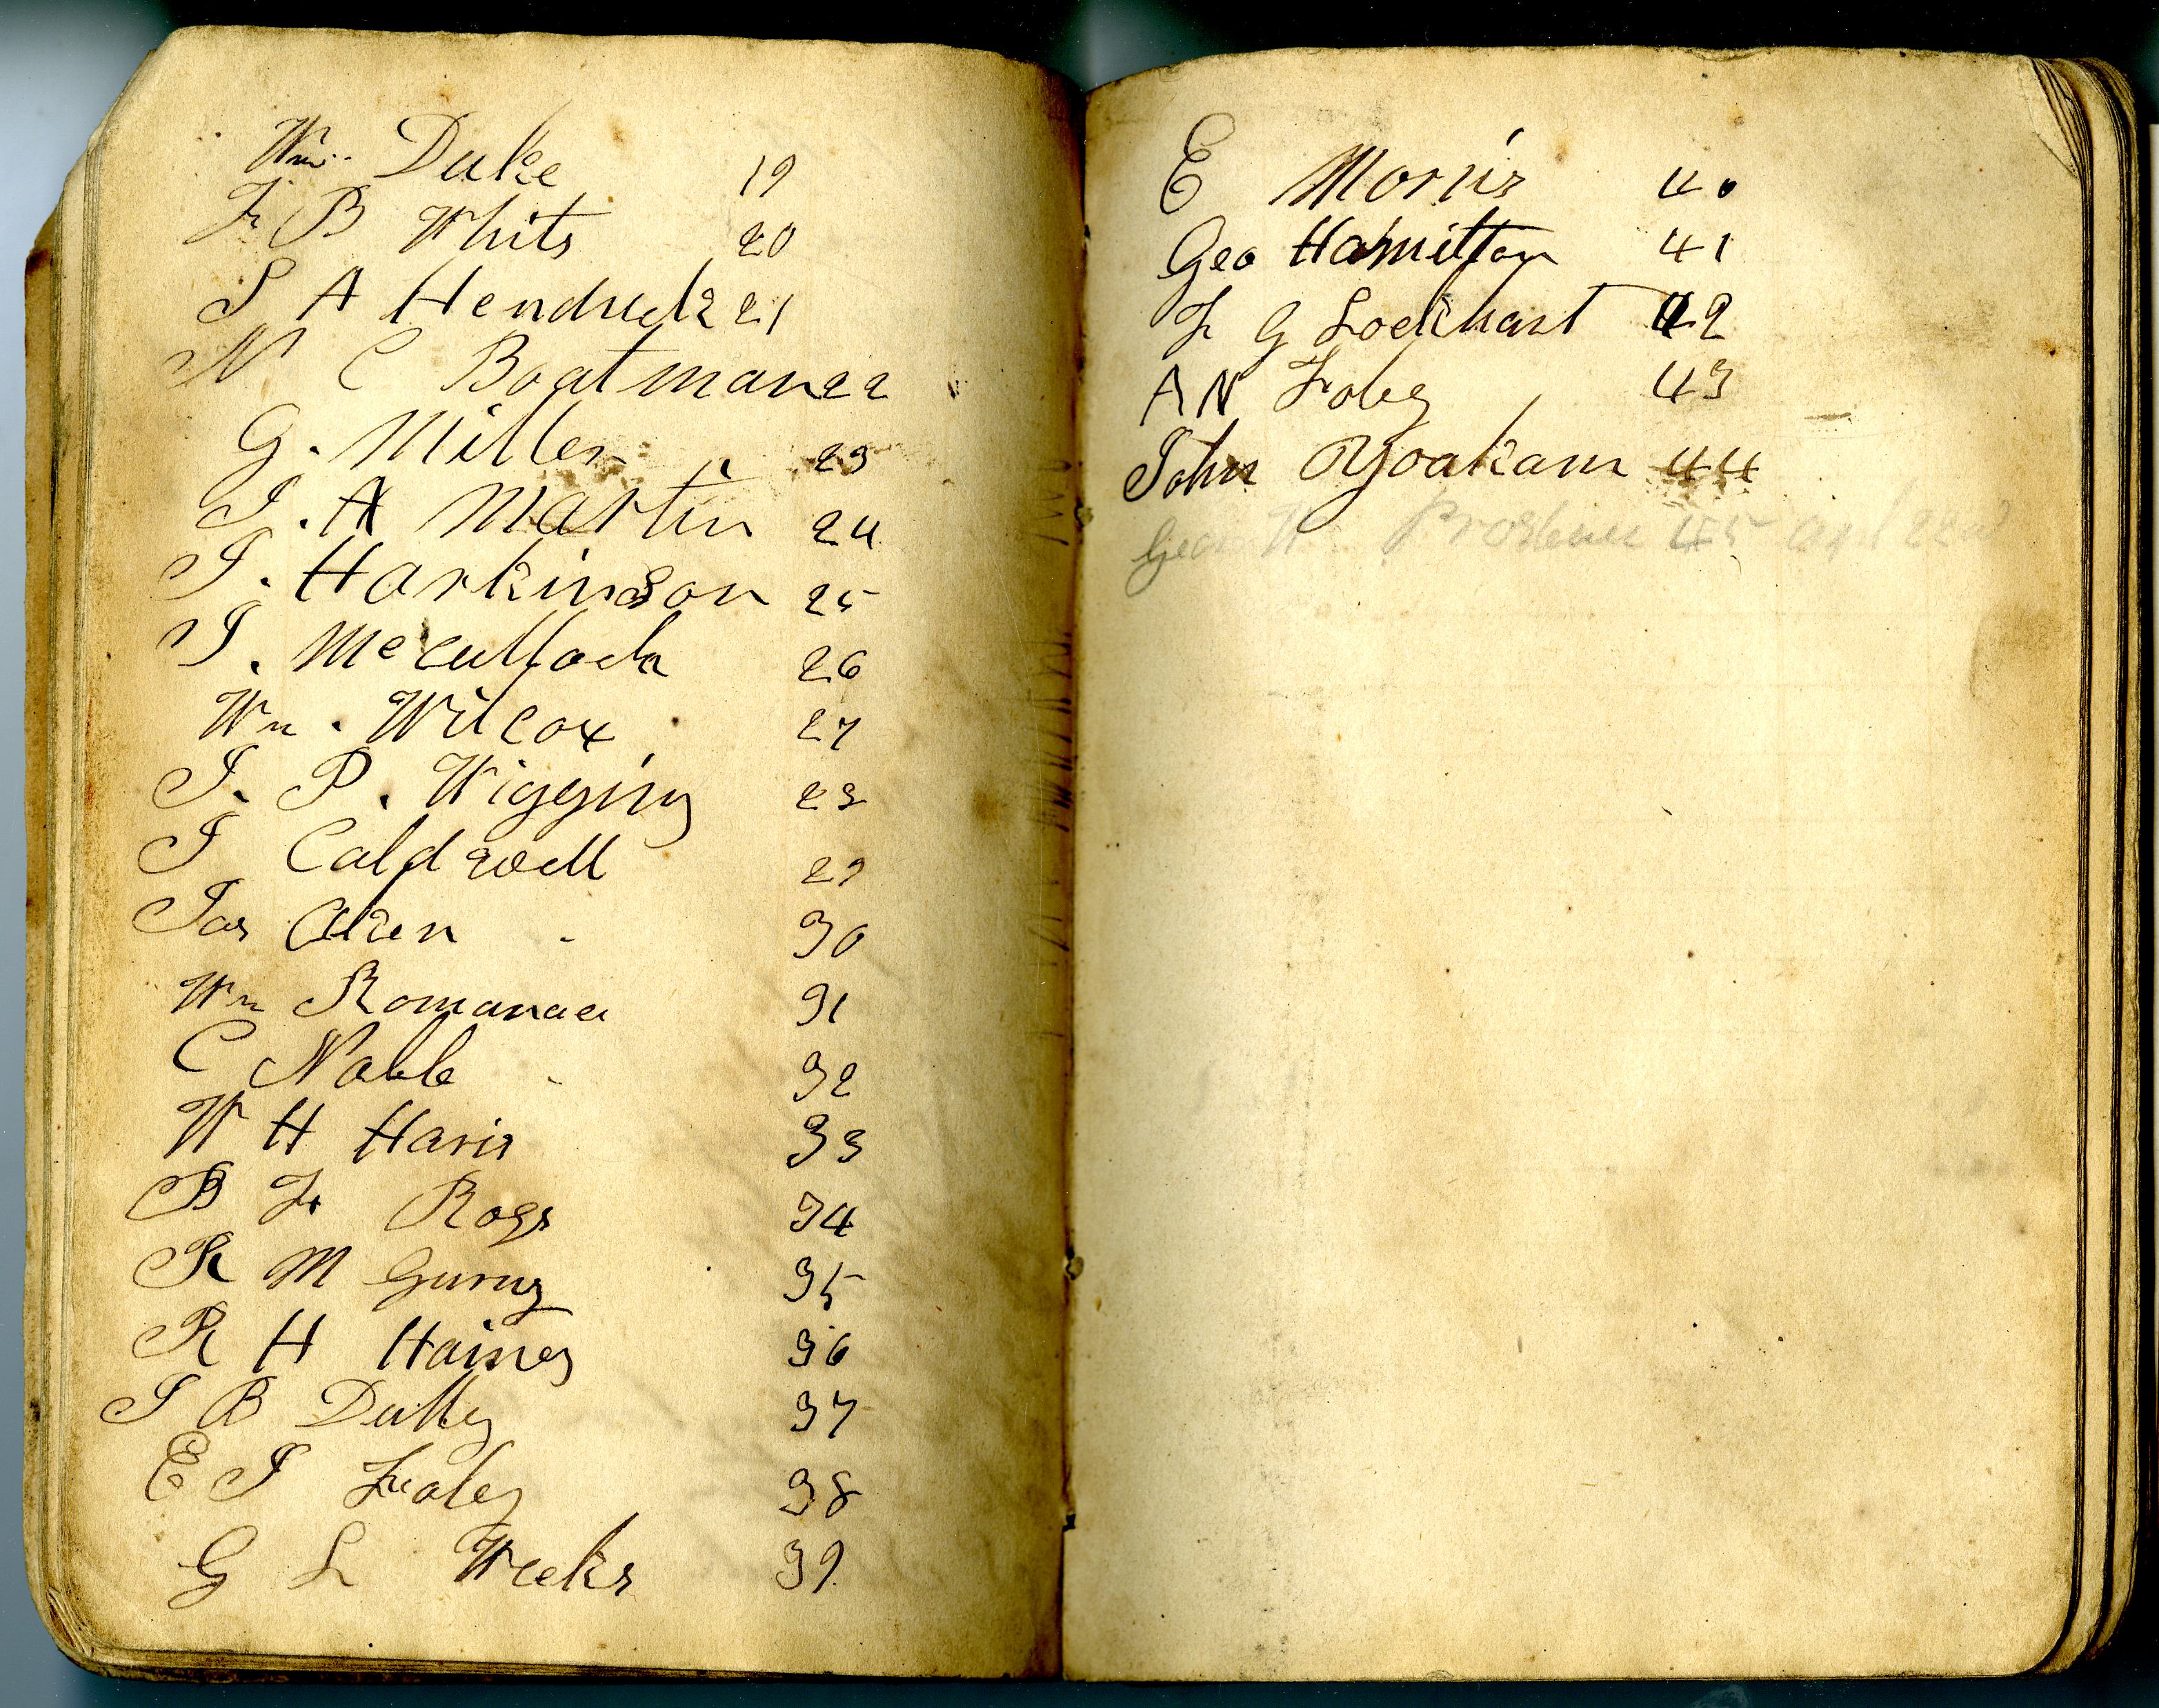 Wm. Duke 19
F B Whits 20
S A Hendricks 21
N C Boatman 22
G. Miller 23
J. A Martin 24
J. Harkinson 25
J. McCulloch 26
Wm. Wilcox 27
J. P. Wiggins 28
J Caldwell 29
Jas Aken 30
Wm 31
C Noble 32
W H Haris 33
B F Rogs 34
R M 35
R H Haines 36
J B 37
E J 38
G L Weeks 39
E Morris 40
Geo Hamilton 41
F G Lockhart 42
A N Foley 43
John Yoakam 44
Geo W 45